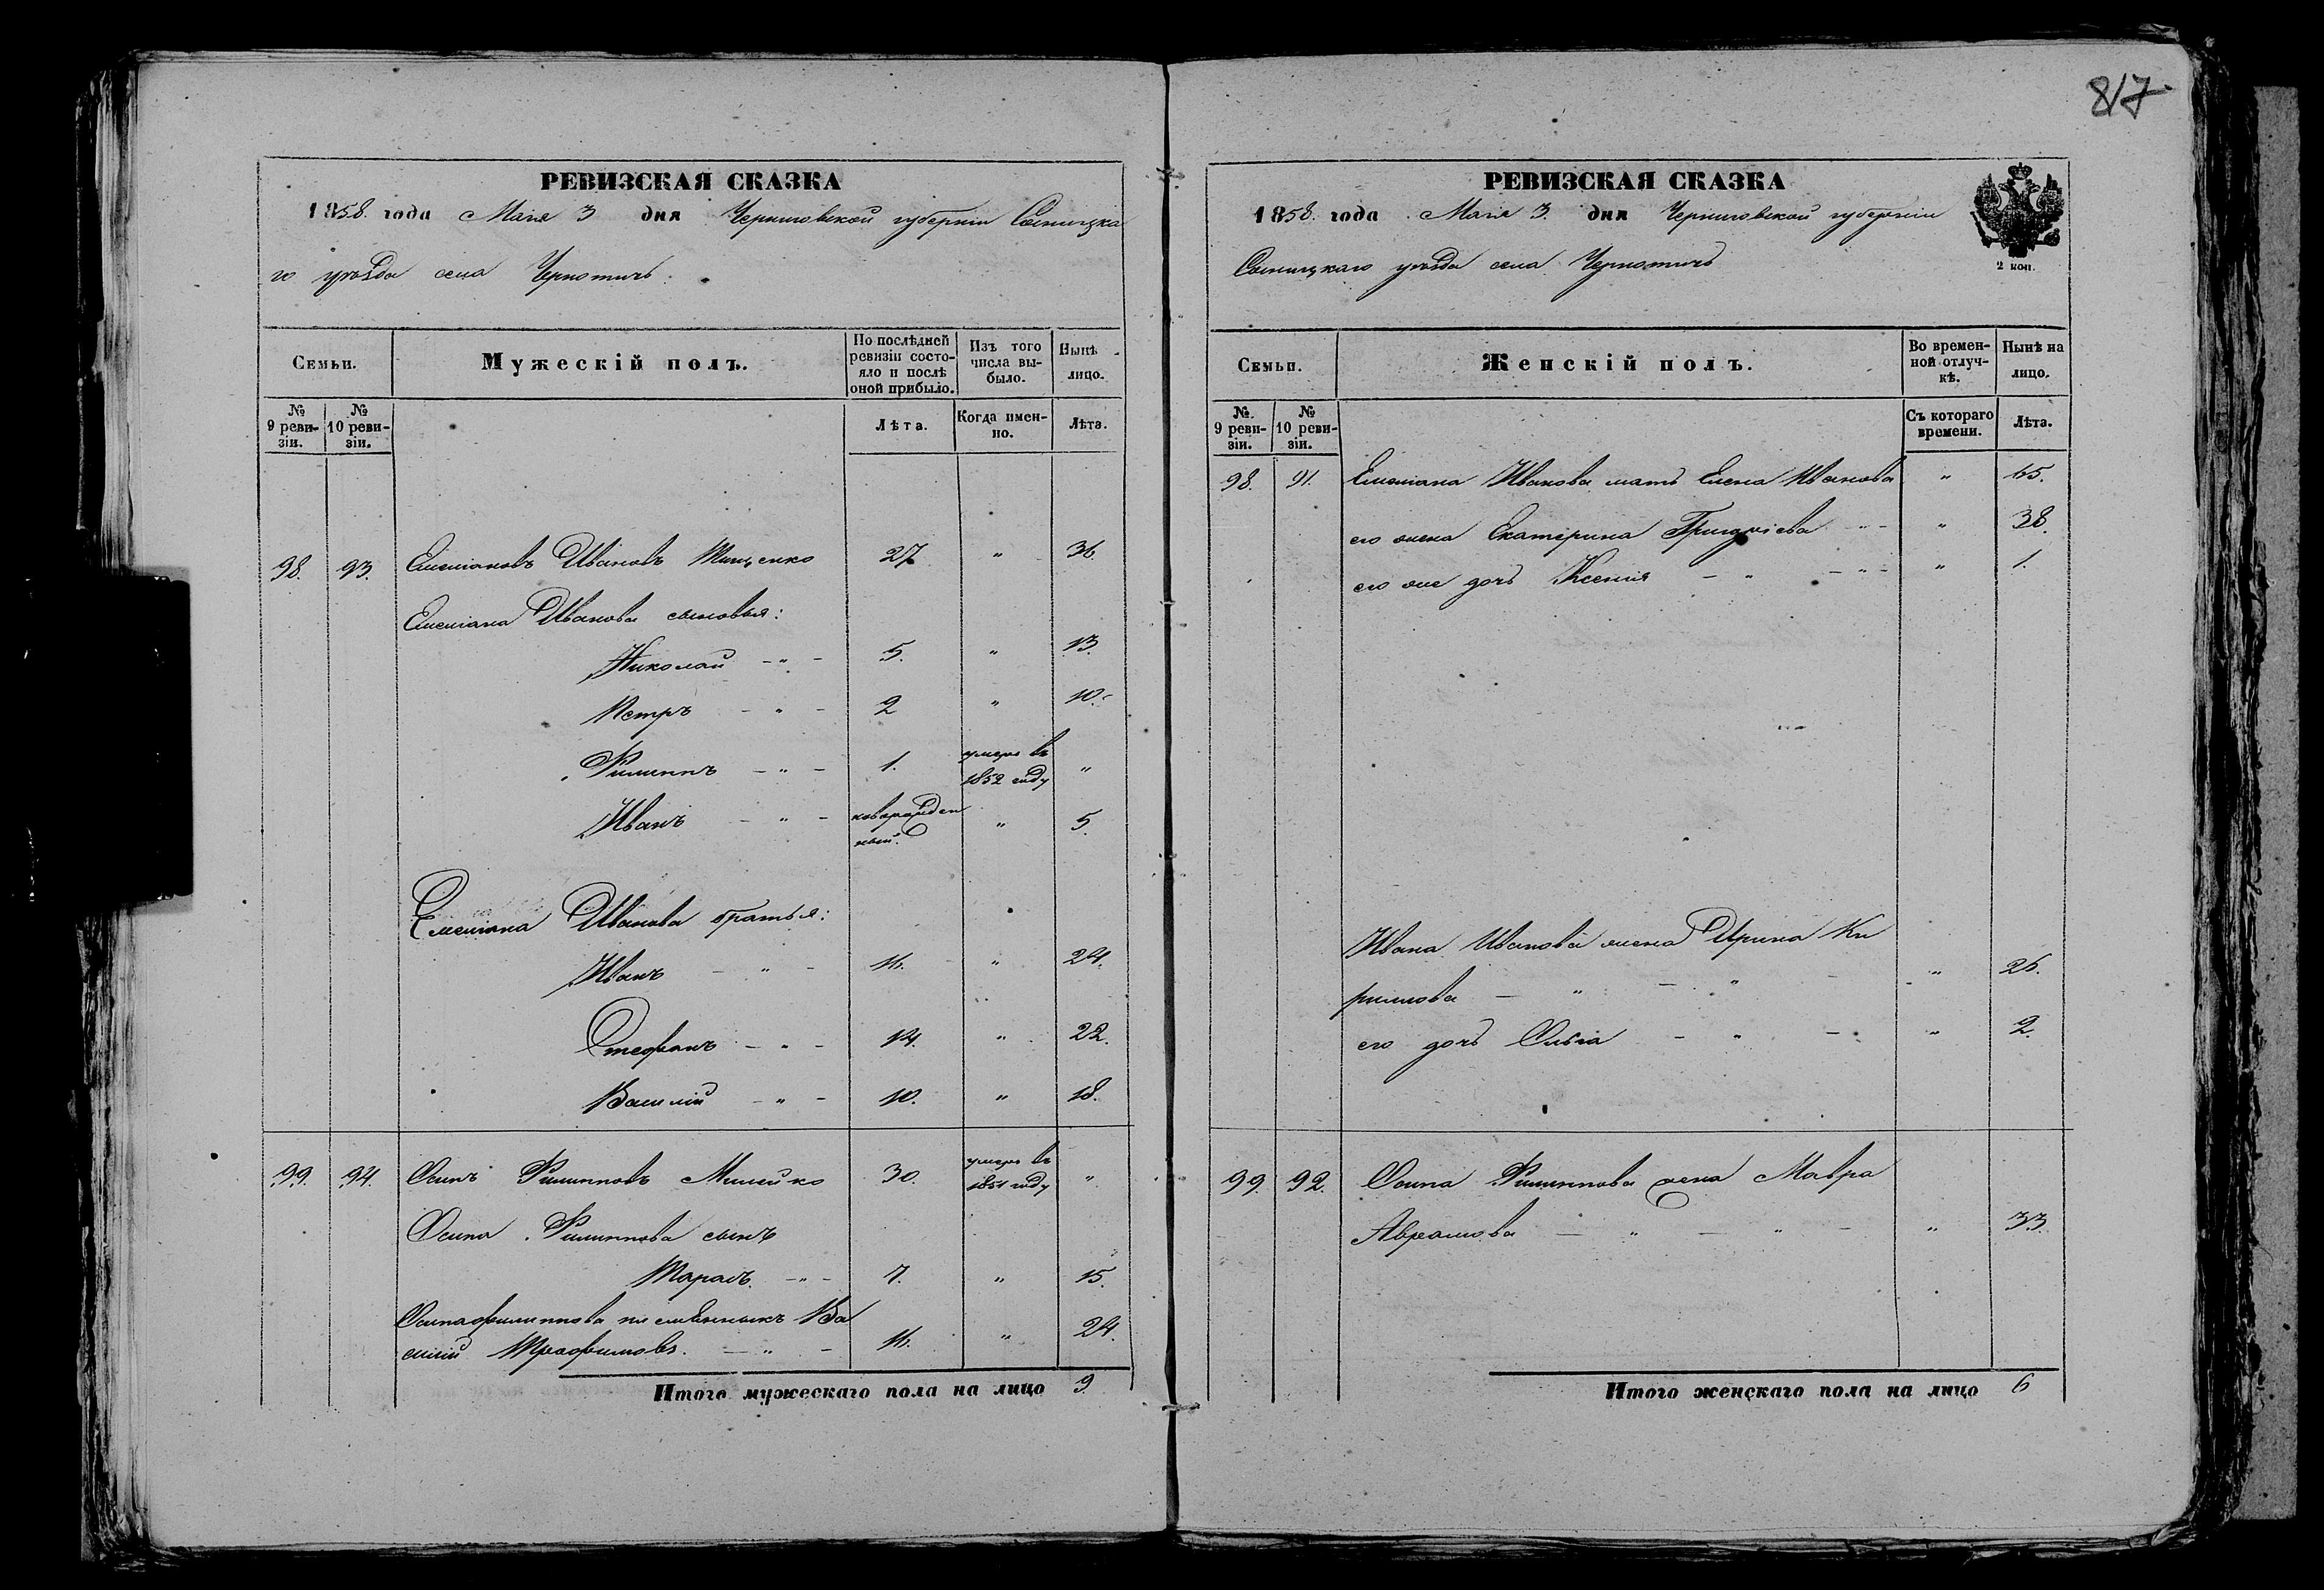 817
РЕВИЗСКАЯ СКАЗКА
1858. года Маія 3 дня Черниговской губерніи Сосницка
го уѣзда села Чернотичъ.
Семьи.
Мужескій полъ.
По послѣдней ревизіи состояло и послѣ оной прибыло.
Изъ того числа выбыло.
Нынѣ лицо.
№ 9 ревизіи.
№ 10 ревизіи.
Лѣта.
Когда именно.
Лѣта.
98. 93. Емеліановъ Ивановъ Тищенко 27 " 36.
Емеліана Иванова сыновья:
Николай - " - 5. " 13.
Петръ - " - 2 " 10.
Филиппъ - " - 1. умеръ въ 1852 году "
Иванъ - " - новорожденный. " 5.
Емеліана Иванова братья:
Иванъ - " - 16. " 24.
Стефанъ - " - 14. " 22.
Василій - " - 10. " 18.
99. 94. Осипъ Филипповъ 30. умеръ въ 1851 году "
Осипа Филиппова сынъ
Тарасъ. - " - 7. " 15.
Осипа Филиппова племянникъ Ва
силій Трофимовъ. - " - 16. " 24.
Итого мужескаго пола на лицо 9
РЕВИЗСКАЯ СКАЗКА
1858. года Маія 3. дня Черниговской губерніи
Сосницкаго уѣзда села Чернотичъ
2 коп.
Семьи.
Женскій полъ.
Во временной отлучкѣ.
Нынѣ на лицо.
№ 9 ревизіи.
№ 10 ревизіи.
Съ котораго времени.
Лѣта.
98. 91. Емеліана Иванова мать Елена Иванова " 65.
его жена Екатерина Григоріева - " - " 38.
его же дочь Ксенія - " - " - " 1.
Ивана Иванова жена Ирина Ки
рилова - " - " - " 26.
его дочь Ольга - " - " 2.
99. 92. Осипа Филиппова жена Мавра
Аврамова - " - " - " 33.
Итого женскаго пола на лицо 6